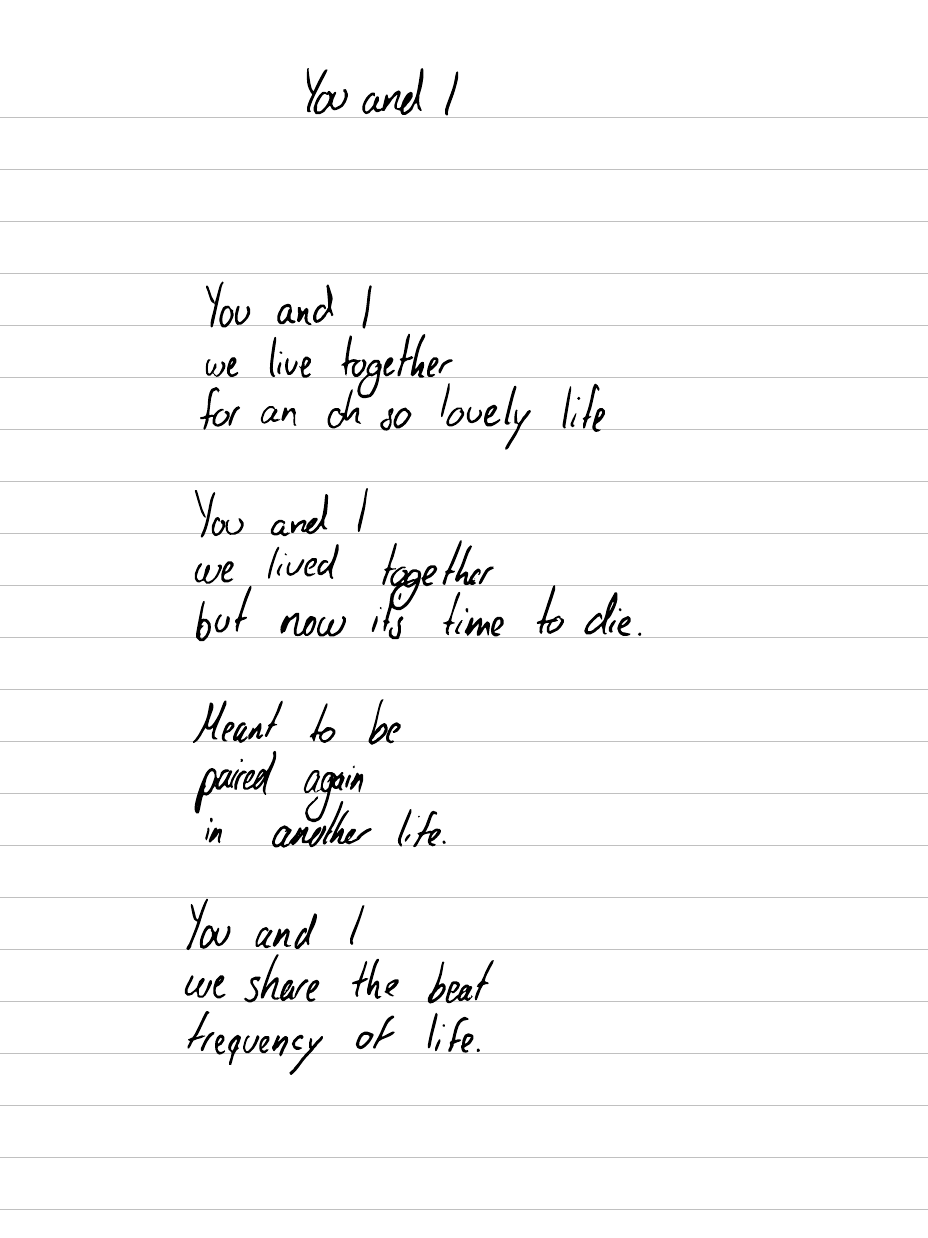 You and I
You and I
we live together
for an oh so lovely life
You and I
we lived together
but now it's time to die.
Meant to be
paired again
in another life.
You and I
we share the beat
frequency of life.